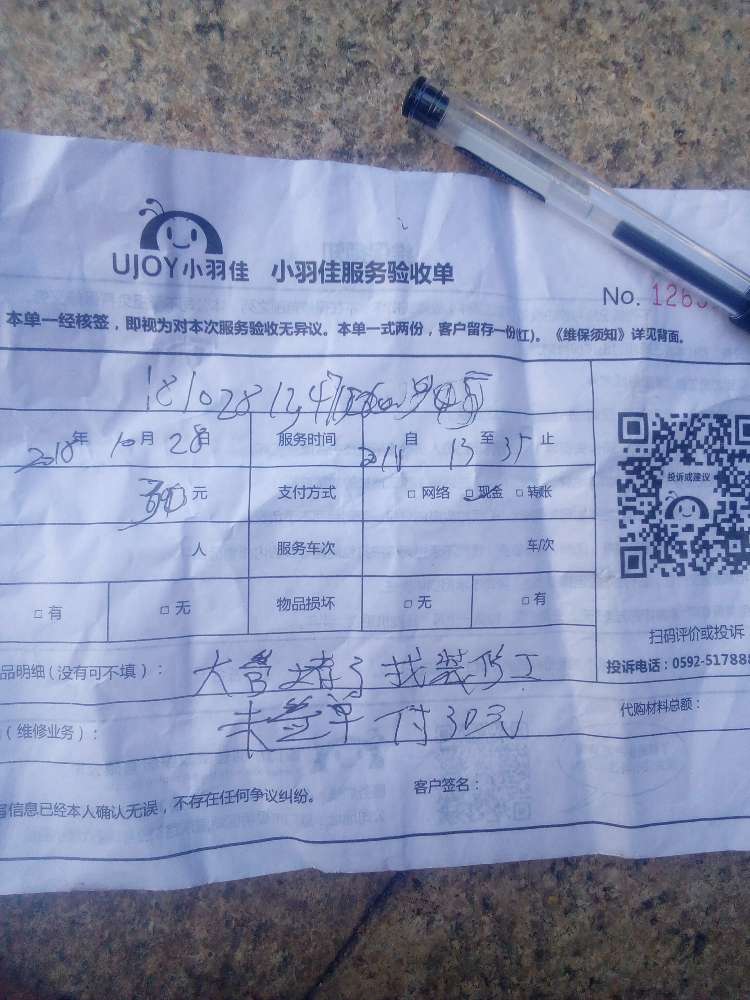 UJOY小羽佳 小羽佳服务验收单
No. 126
本单一经核签，即视为对本次服务验收无异议。本单一式两份，客户留存一份(红)。《维保须知》详见背面。
1810281347
2018年 10月 28日 服务时间 自 13 至 35 止
元 支付方式 □ 网络 □ 现金 □ 转账
人 服务车次 车/次
投诉或建议
□ 有 □ 无 物品损坏 □ 无 □ 有
扫码评价或投诉
品明细（没有可不填）： 大管堵了找装修工
投诉电话：0592-517888
未签单 付30元
代购材料总额：
（维修业务）：
客户签名：
写信息已经本人确认无误，不存在任何争议纠纷。